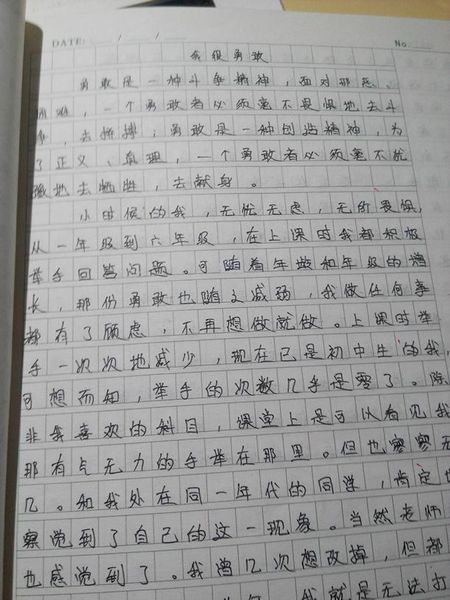 DATE: / /
No.
我很勇敢
勇敢是一种斗争精神，面对邪恶、
一个勇敢者必须毫不畏惧地去斗
，去拼搏；勇敢是一种创造精神，为
了正义、真理，一个勇敢者必须毫不犹
豫地去牺牲，去献身。
小时候的我，无忧无虑，无所畏惧，
从一年级到六年级，在上课时我都积极
举手回答问题。可随着年龄和年级的增
长，那份勇敢也随之减弱，我做任何事
都有了顾虑，不再想做就做。上课时举
手一次次地减少，现在已是初中生的我，
可想而知，举手的次数几乎是零了。除
非我喜欢的科目，课堂上是可以看见我
那有点无力的手举在那里。但也寥寥无
几。和我处在同一年代的同学，肯定也
察觉到了自己的这一现象。当然老师
也感觉到了。我曾几次想改掉，但都
我就是无法打